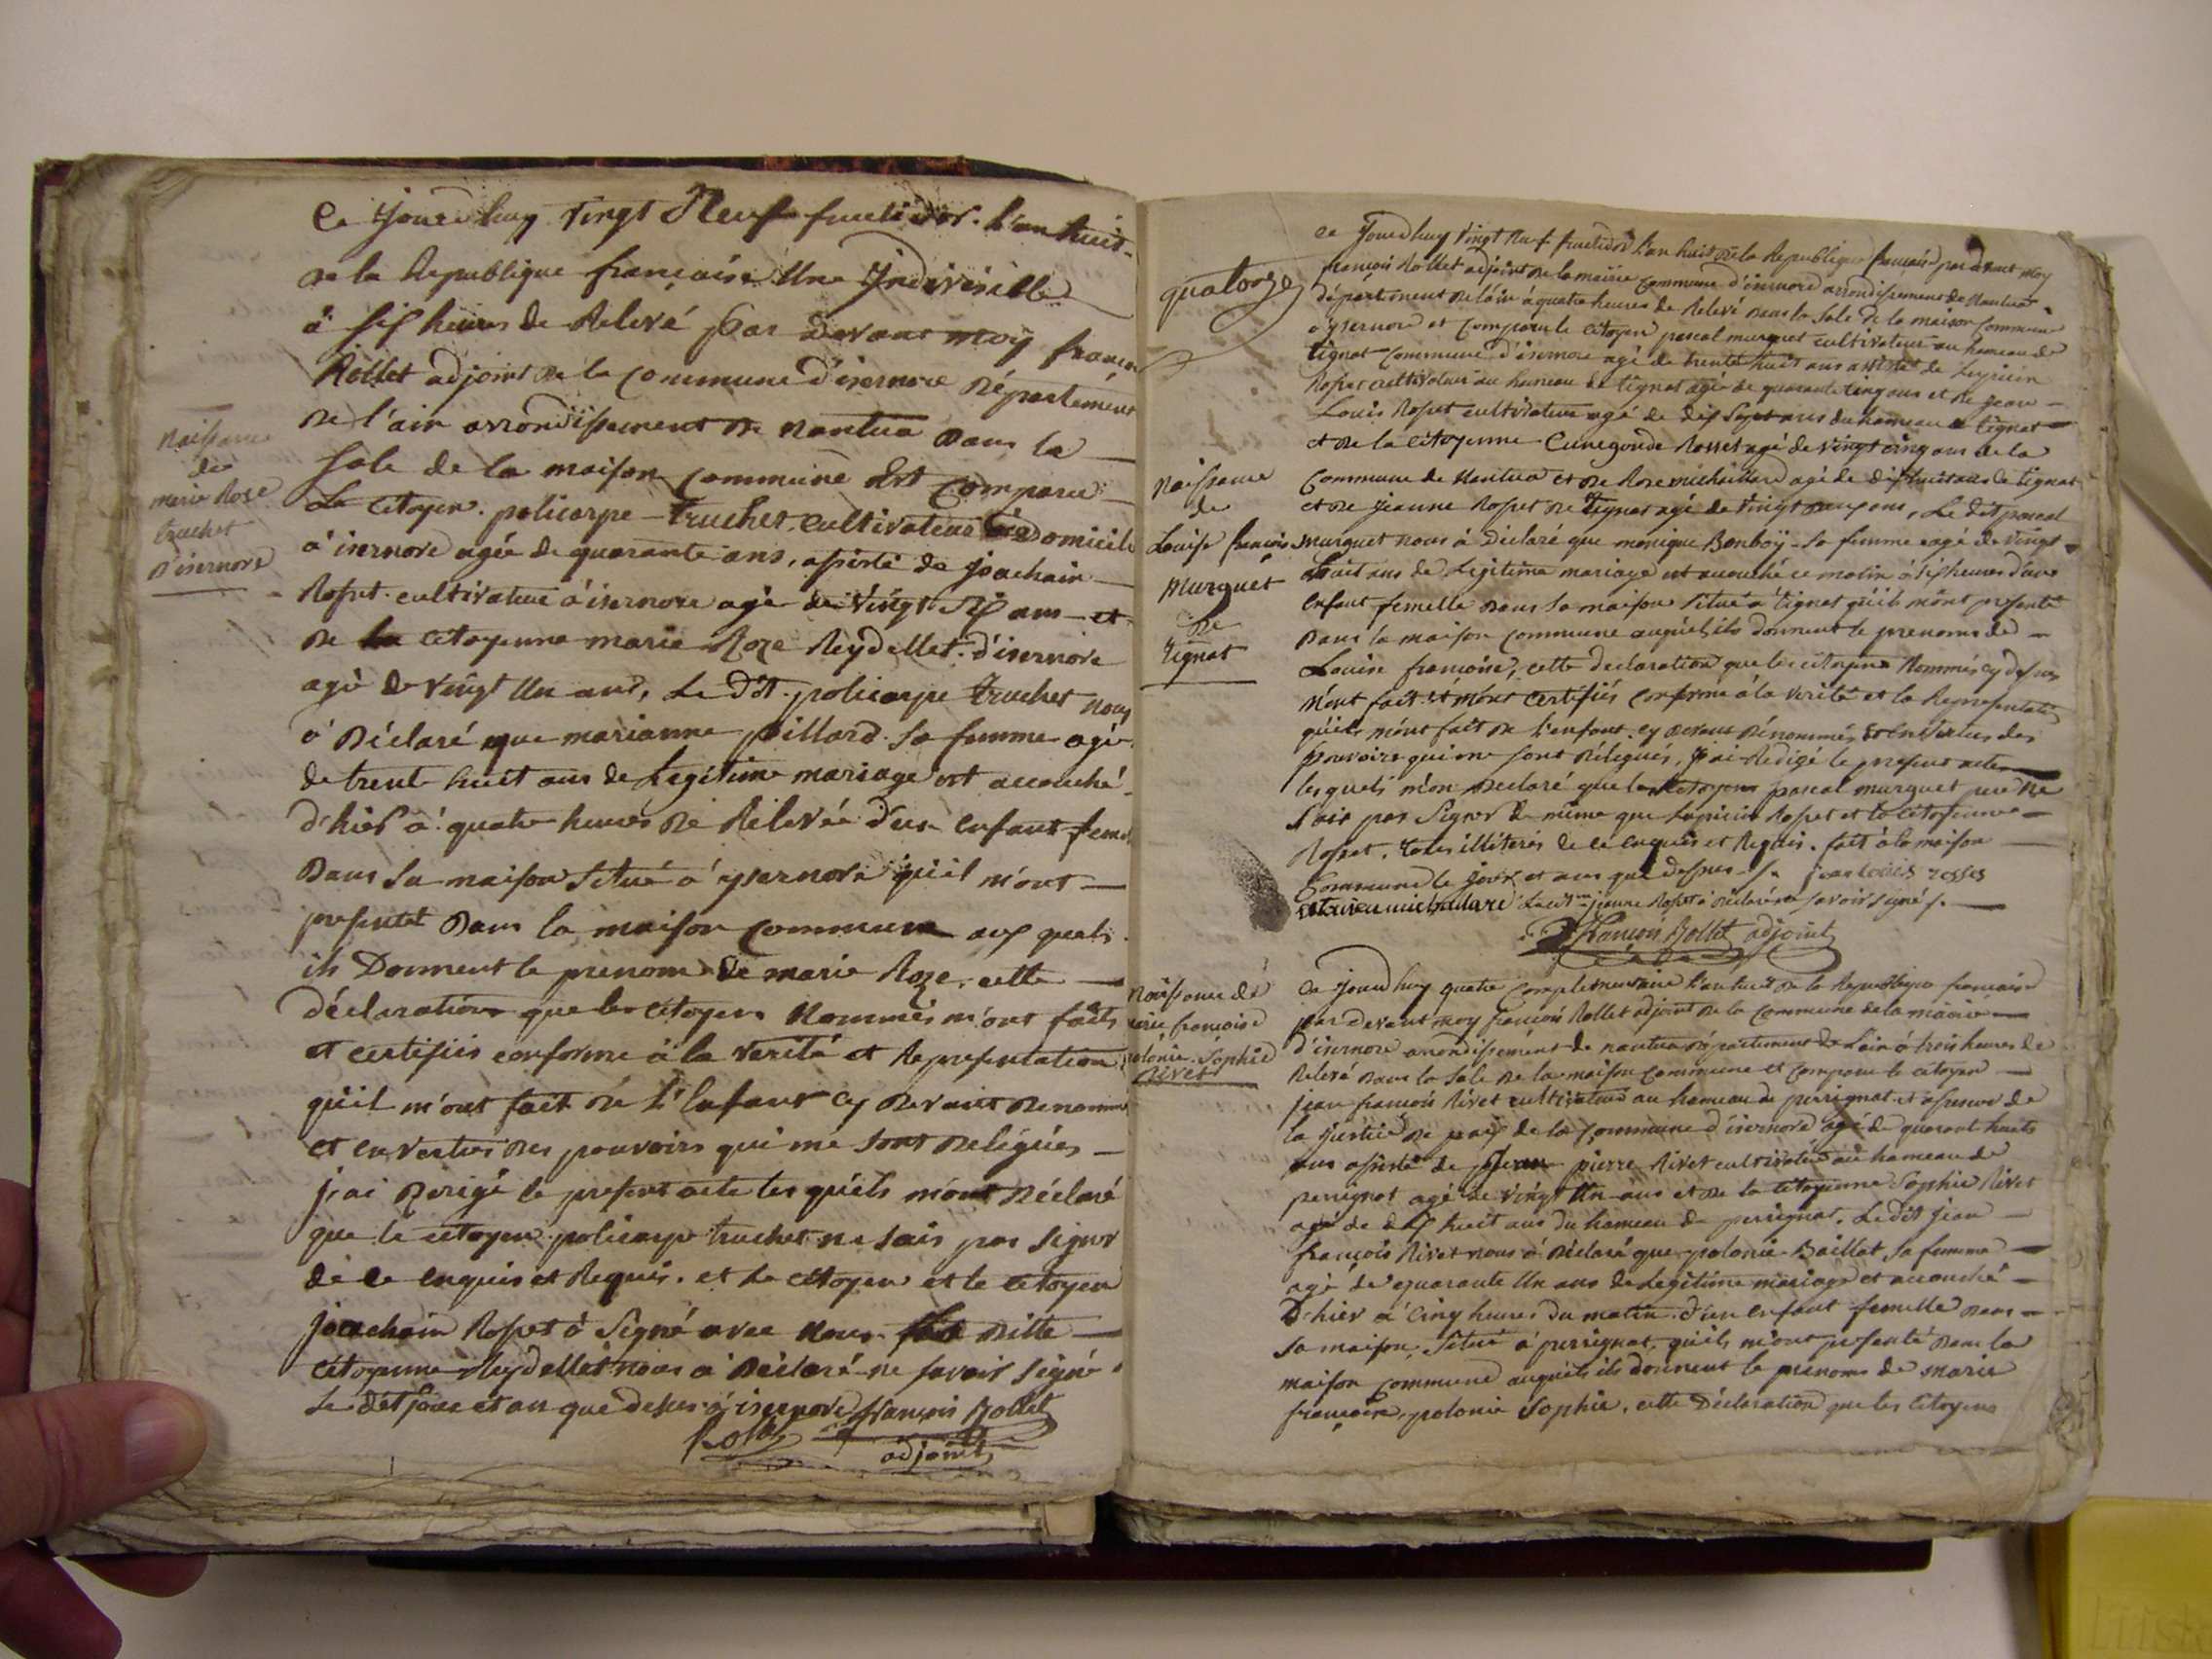 Ce jourd'huy vingt Neuf fructidor. L'an huit
de la Republique française Une Indivisible
à six heures de Relevé par devant moy françois
Rollet adjoint de la commune d'isernore Département
de l'ain arrondissement de nantua dans la
sale de la maison commune est comparu
Le citoyen policarpe truchet cultivateur domicilé
à isernore agée de quarante ans, assisté de joachain
Rosset cultivateur à isernore agé de vingt six ans et
de la citoyenne marie Roze Reydellet d'isernore
agé de vingt Un ans, Le dit policarpe truchet nous
à Déclaré que marianne pillard sa femme agé
de trente huit ans de Legitime mariage est accouché
d'hier à quatre heures de Relevée d'un enfant femel
Dans sa maison Situé à ysernore qu'il m'ont
presentét Dans la maison commune aux quels
ils Donnent le prenom de marie Roze. cette
déclaration que les citoyens Nommés m'ont faits
et certifiés conforme à la verité et Representation
qu'il m'ont fait de L'Enfant cy devant denommé
et en vertus des pouvoirs qui me sont delegués
j'ai Rerigé le present acte les quels m'ont Déclaré
que le citoyen policarpe truchet ne sais pas signer
de ce enquis et Requis. et Le citoyen et le citoyen
joachain Rosset à Signé avec nous ditte
citoyenne Reydellet nous a Déclaré ne savoir signé
Le dit jour et an que dessus à isernore françois Rollet
adjoint
Naissance
de
marie Roze
truchet
D'isernore
quatorze
ce jourd'huy vingt Neuf fructidor L'an huit de la Republique français par devant moy
françois Rollet adjoint de la mairie commune d'isernore arrondissement de Nantua
département de l'ain à quatre heures de Relevé dans la Sale de la maison commune
à ysernore et comparu le citoyen pascal murguet cultivateur au hameau de
tignat commune d'isernore agé de trente huit ans assisté de
Rosset cultivateur au hameau de tignat agé de quarante cinq ans et de jean
Louis Rosset cultivateur agé de dix Sept ans du hameau de tignat
et de la citoyenne Cunegonde Rosset agé de vingt cinq ans de la
Commune de Nantua et de Rose michaillard agé de dix huit ans de tignat
et de jeanne Rosset de tignat agé de vingt ans, Le dit pascal
murguet nous à Déclaré que monique Bonboÿ sa femme agé de vingt
huit ans de Legitime mariage est accouché ce matin à six heures d'un
enfant femelle dans sa maison Situé à tignat qu'il m'ont presenté
Dans la maison commune auquel ils donnent le prenoms de
Louise françoise, cette declaration que les citoyens Nommés cy dessus
m'ont fait et m'ont certifiés conforme à la verité et la Representation
qu'ils m'ont fait de l'enfant cy devant Dénommés et en vertus des
pouvoirs qui me sont Délegués, j'ai Redigé le present acte
lesquels m'on Declaré que le citoyens pascal murguet pere ne
sais pas Signer de même que Rosset et la citoyenne
Rosset. illiterés de ce enquis et Requis. fait à la maison
Commune le jour et ans que dessus jean louis rosses
jeanne Rosset à déclaré savoir signé
françois Rollet adjoint
Naissance
de
Louise françoise
Murguet
De
tignat
Ce jourd'huy quatre complementaire L'an huit de la Republique française
par devant moy françois Rollet adjoint de la commune de la mairie
d'isernore arrondissement de nantua département de l'ain à trois heures de
Relevé dans la Sale de la maison commune et comparu le citoyen
jean françois Rivet cultivateur au hameau de perrignat et assesseur de
la justice de paix de la commune d'isernore agé de quarant huit
ans assisté de pierre Rivet cultivateur au hameau de
perrignat agé de vingt Un ans et de la citoyenne Sophie Rivet
agé de dix huit ans du hameau de perrignat. Le dit jean
françois Rivet nous à Déclaré que polonie Baillat sa femme
agé de quarante Un ans de Legitime mariage et accouché
D'hier à cinq heures du matin d'un enfant femelle dans
sa maison Situé à perrignat, qu'ils m'ont presenté dans la
maison commune auquels ils donnent le prenoms de marie
françoise, polonie Sophie, cette Déclaration que les citoyens
Naissance de
marie françoise
polonie Sophie
Rivet